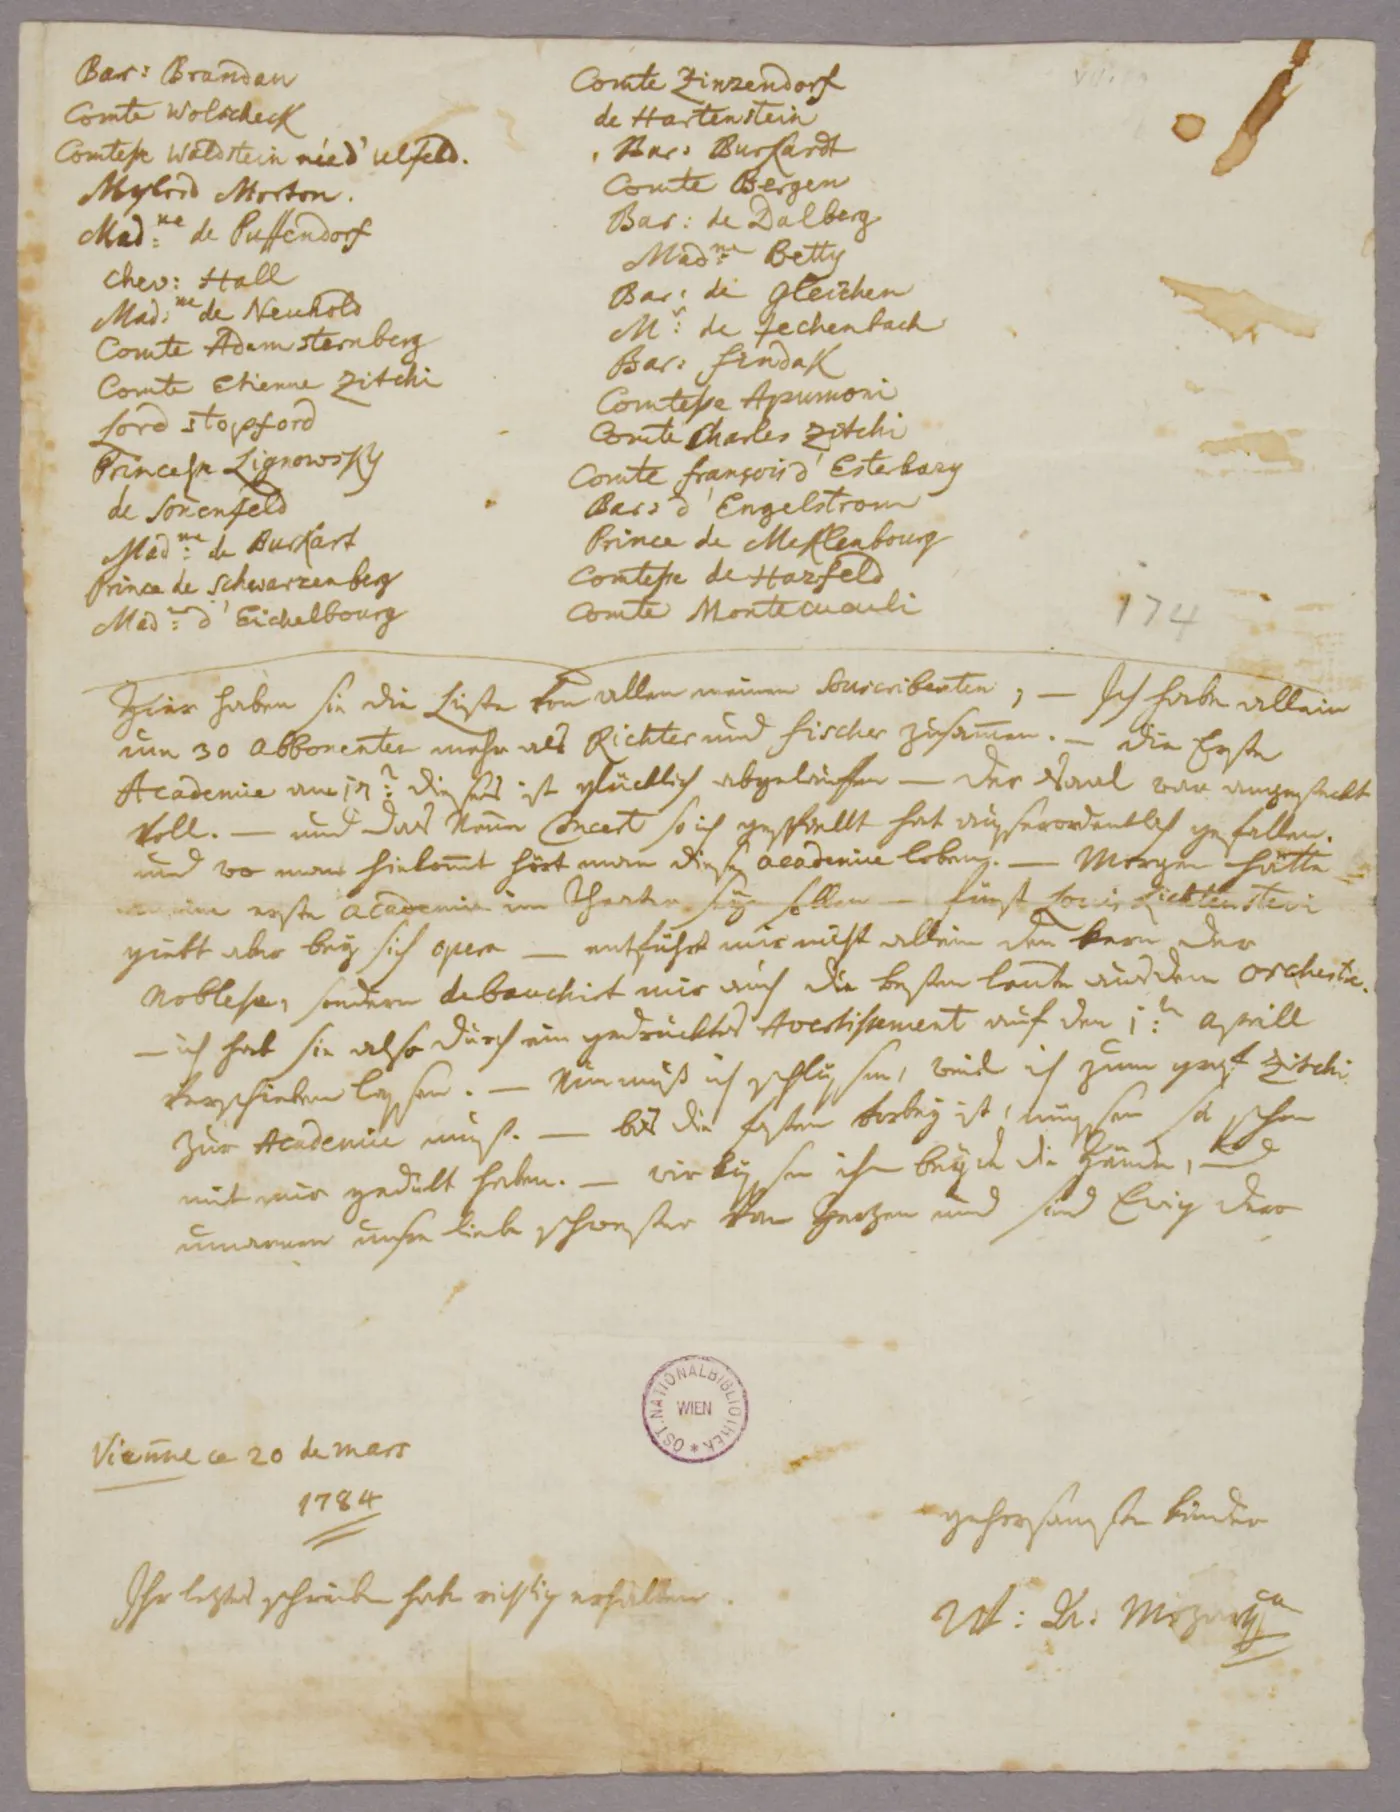 Bar: Brandau
Comte Wolscheck
Comtesse Waldstein née d'ulfeld.
Mylord Morton.
Mad:ne de Puffendorf
Chev: Hall
Mad:me de Neuhold
Comte Adam sternberg
Comte Etienne Zitchi
Lord stopford
Princesse Lignowsky
de Sonenfeld
Mad:me de Burkart
Prince de Schwarzenberg
Mad:me d'Eichelbourg
Comte Zinzendorf
de Hartenstein
Bar: Burkardt
Comte Bergen
Bar: de Dalberg
Mad:me Betty
Bar: de gleichen
M:r de Jechenbach
Bar: findak
Comtesse Apumoni
Comte Charles Zitchi
Comte françois d'Esterhazy
Bar: d'Engelstrom
Prince de Meklenbourg
Comtesse de Hazfeld
Comte Montecuculi
174
Hier haben sie die Liste von allen meinen Souscribenten; — Ich habe allein
um 30 abbonenten mehr als Richter und fischer zusammen. — die Erste
Academie am 17:t dieses ist glücklich abgelaufen — der Saal war angesteckt
voll. — und das Neue Concert so ich gespiellt hat ausserordentlich gefallen.
und wo man hinkömmt hört man diese academie loben. — Morgen hätte
meine erste academie im Theater seyn sollen — fürst Louis Lichtenstein
giebt aber bey sich opera — entführt mir nicht allein den kern der
Noblesse, sondern debauchirt mir auch die besten leute aus dem orchestre.
— ich hab sie also durch ein gedrucktes Avertissement auf den 1:t aprill
verschieben lassen. — Nun muß ich schlüssen, weil ich zum graf Zitchi
zur Academie muß. — bis die fasten vorbey ist, müssen sie schon
mit mir gedult haben. — wir küssen ihn beyde die hände, und
umarmen unsre liebe schwester von herzen und sind Ewig dero
ÖST. NATIONALBIBLIOTHEK * WIEN
Vienne ce 20 de mars
1784
gehorsamste kinder
Ihr letztes schreiben habe richtig erhalten.
W: A: Mozart